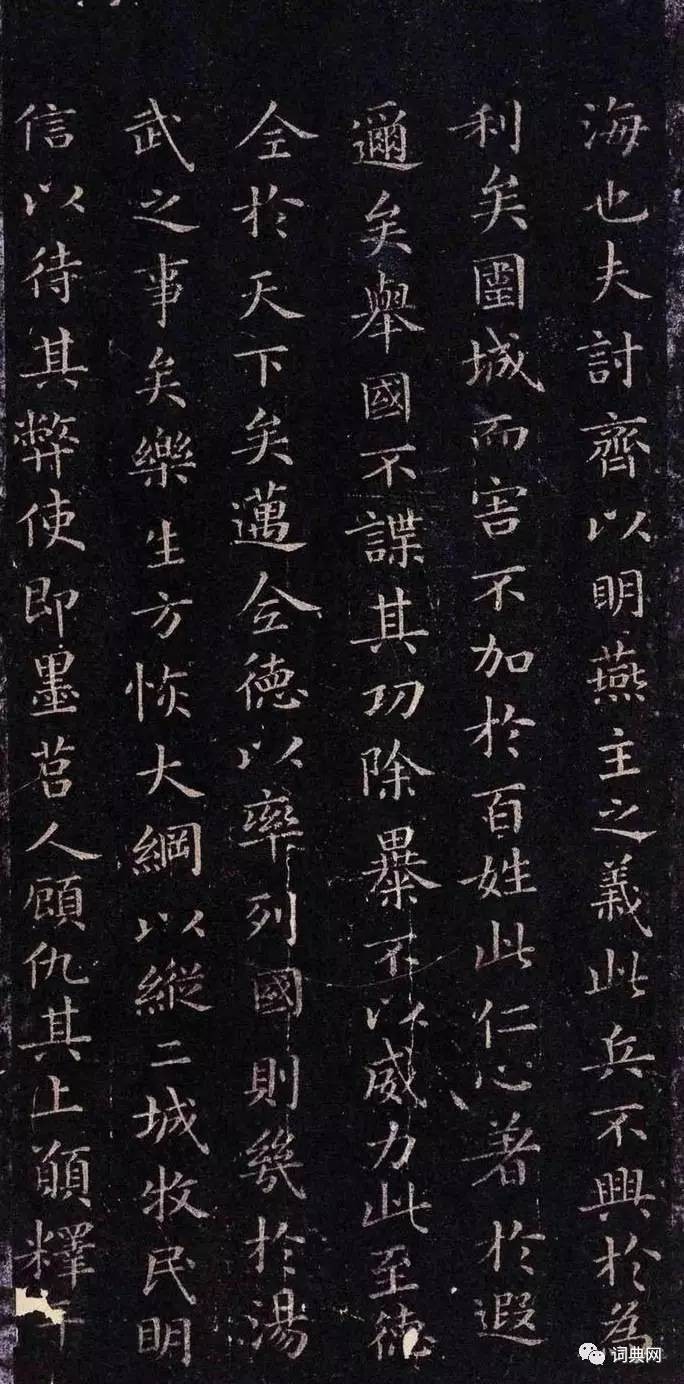 海也夫討齊以明燕主之義此兵不興於為
利矣圍城而害不加於百姓此仁心著於遐
邇矣舉國不謀其功除暴不以威力此至德
全於天下矣邁全德以率列國則幾於湯
武之事矣樂生方恢大綱以縱二城牧民明
信以待其弊使即墨莒人顧仇其上願釋干
词典网